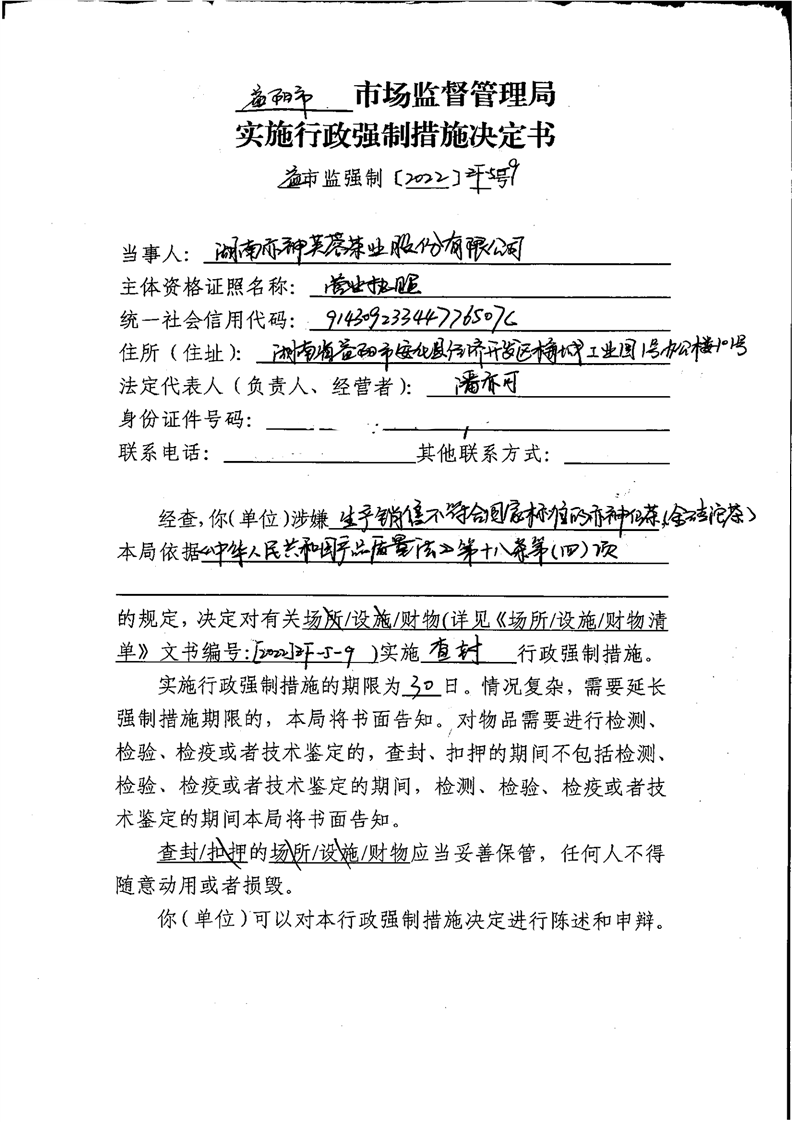 益阳市 市场监督管理局
实施行政强制措施决定书
益市监强制〔2022〕 号
当事人: 湖南亦神芙蓉茶业股份有限公司
主体资格证照名称: 营业执照
统一社会信用代码: 91430923344776507C
住所(住址): 湖南省益阳市安化县经济开发区梅城工业园1号办公楼101号
法定代表人(负责人、经营者): 潘亦可
身份证件号码:
联系电话: 其他联系方式:
经查,你(单位)涉嫌 生产销售不符合国家标准的亦神 茶(金 沱茶)
本局依据《中华人民共和国产品质量法》第十八条第(四)项
的规定,决定对有关场所/设施/财物(详见《场所/设施/财物清
单》文书编号:[2022] -5-9 )实施 查封 行政强制措施。
实施行政强制措施的期限为 30 日。情况复杂,需要延长
强制措施期限的,本局将书面告知。对物品需要进行检测、
检验、检疫或者技术鉴定的,查封、扣押的期间不包括检测、
检验、检疫或者技术鉴定的期间,检测、检验、检疫或者技
术鉴定的期间本局将书面告知。
查封/扣押的场所/设施/财物应当妥善保管,任何人不得
随意动用或者损毁。
你(单位)可以对本行政强制措施决定进行陈述和申辩。